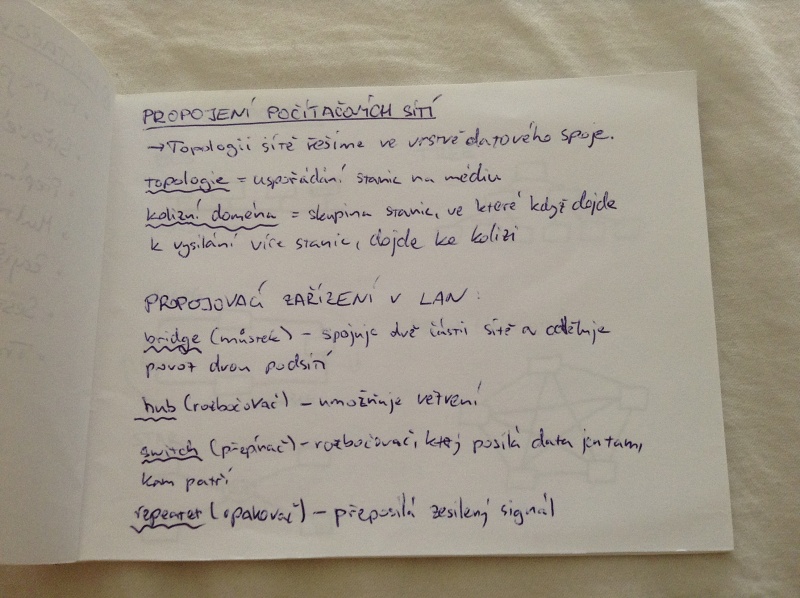 PROPOJENÍ POČÍTAČOVÝCH SÍTÍ
→Topologii sítě řešíme ve vrstvě datového spoje.
topologie = uspořádání stanic na médiu
kolizní doména = skupina stanic, ve které když dojde
k vysílání více stanic, dojde ke kolizi
PROPOJOVACÍ ZAŘÍZENÍ V LAN:
bridge (můstek) – spojuje dvě části sítě a odděluje
povoz dvou podsítí
hub (rozbočovač) – umožňuje větvení
switch (přepínač) – rozbočovač, který posílá data jen tam,
kam patří
repeater (opakovač) – přeposílá zesílený signál